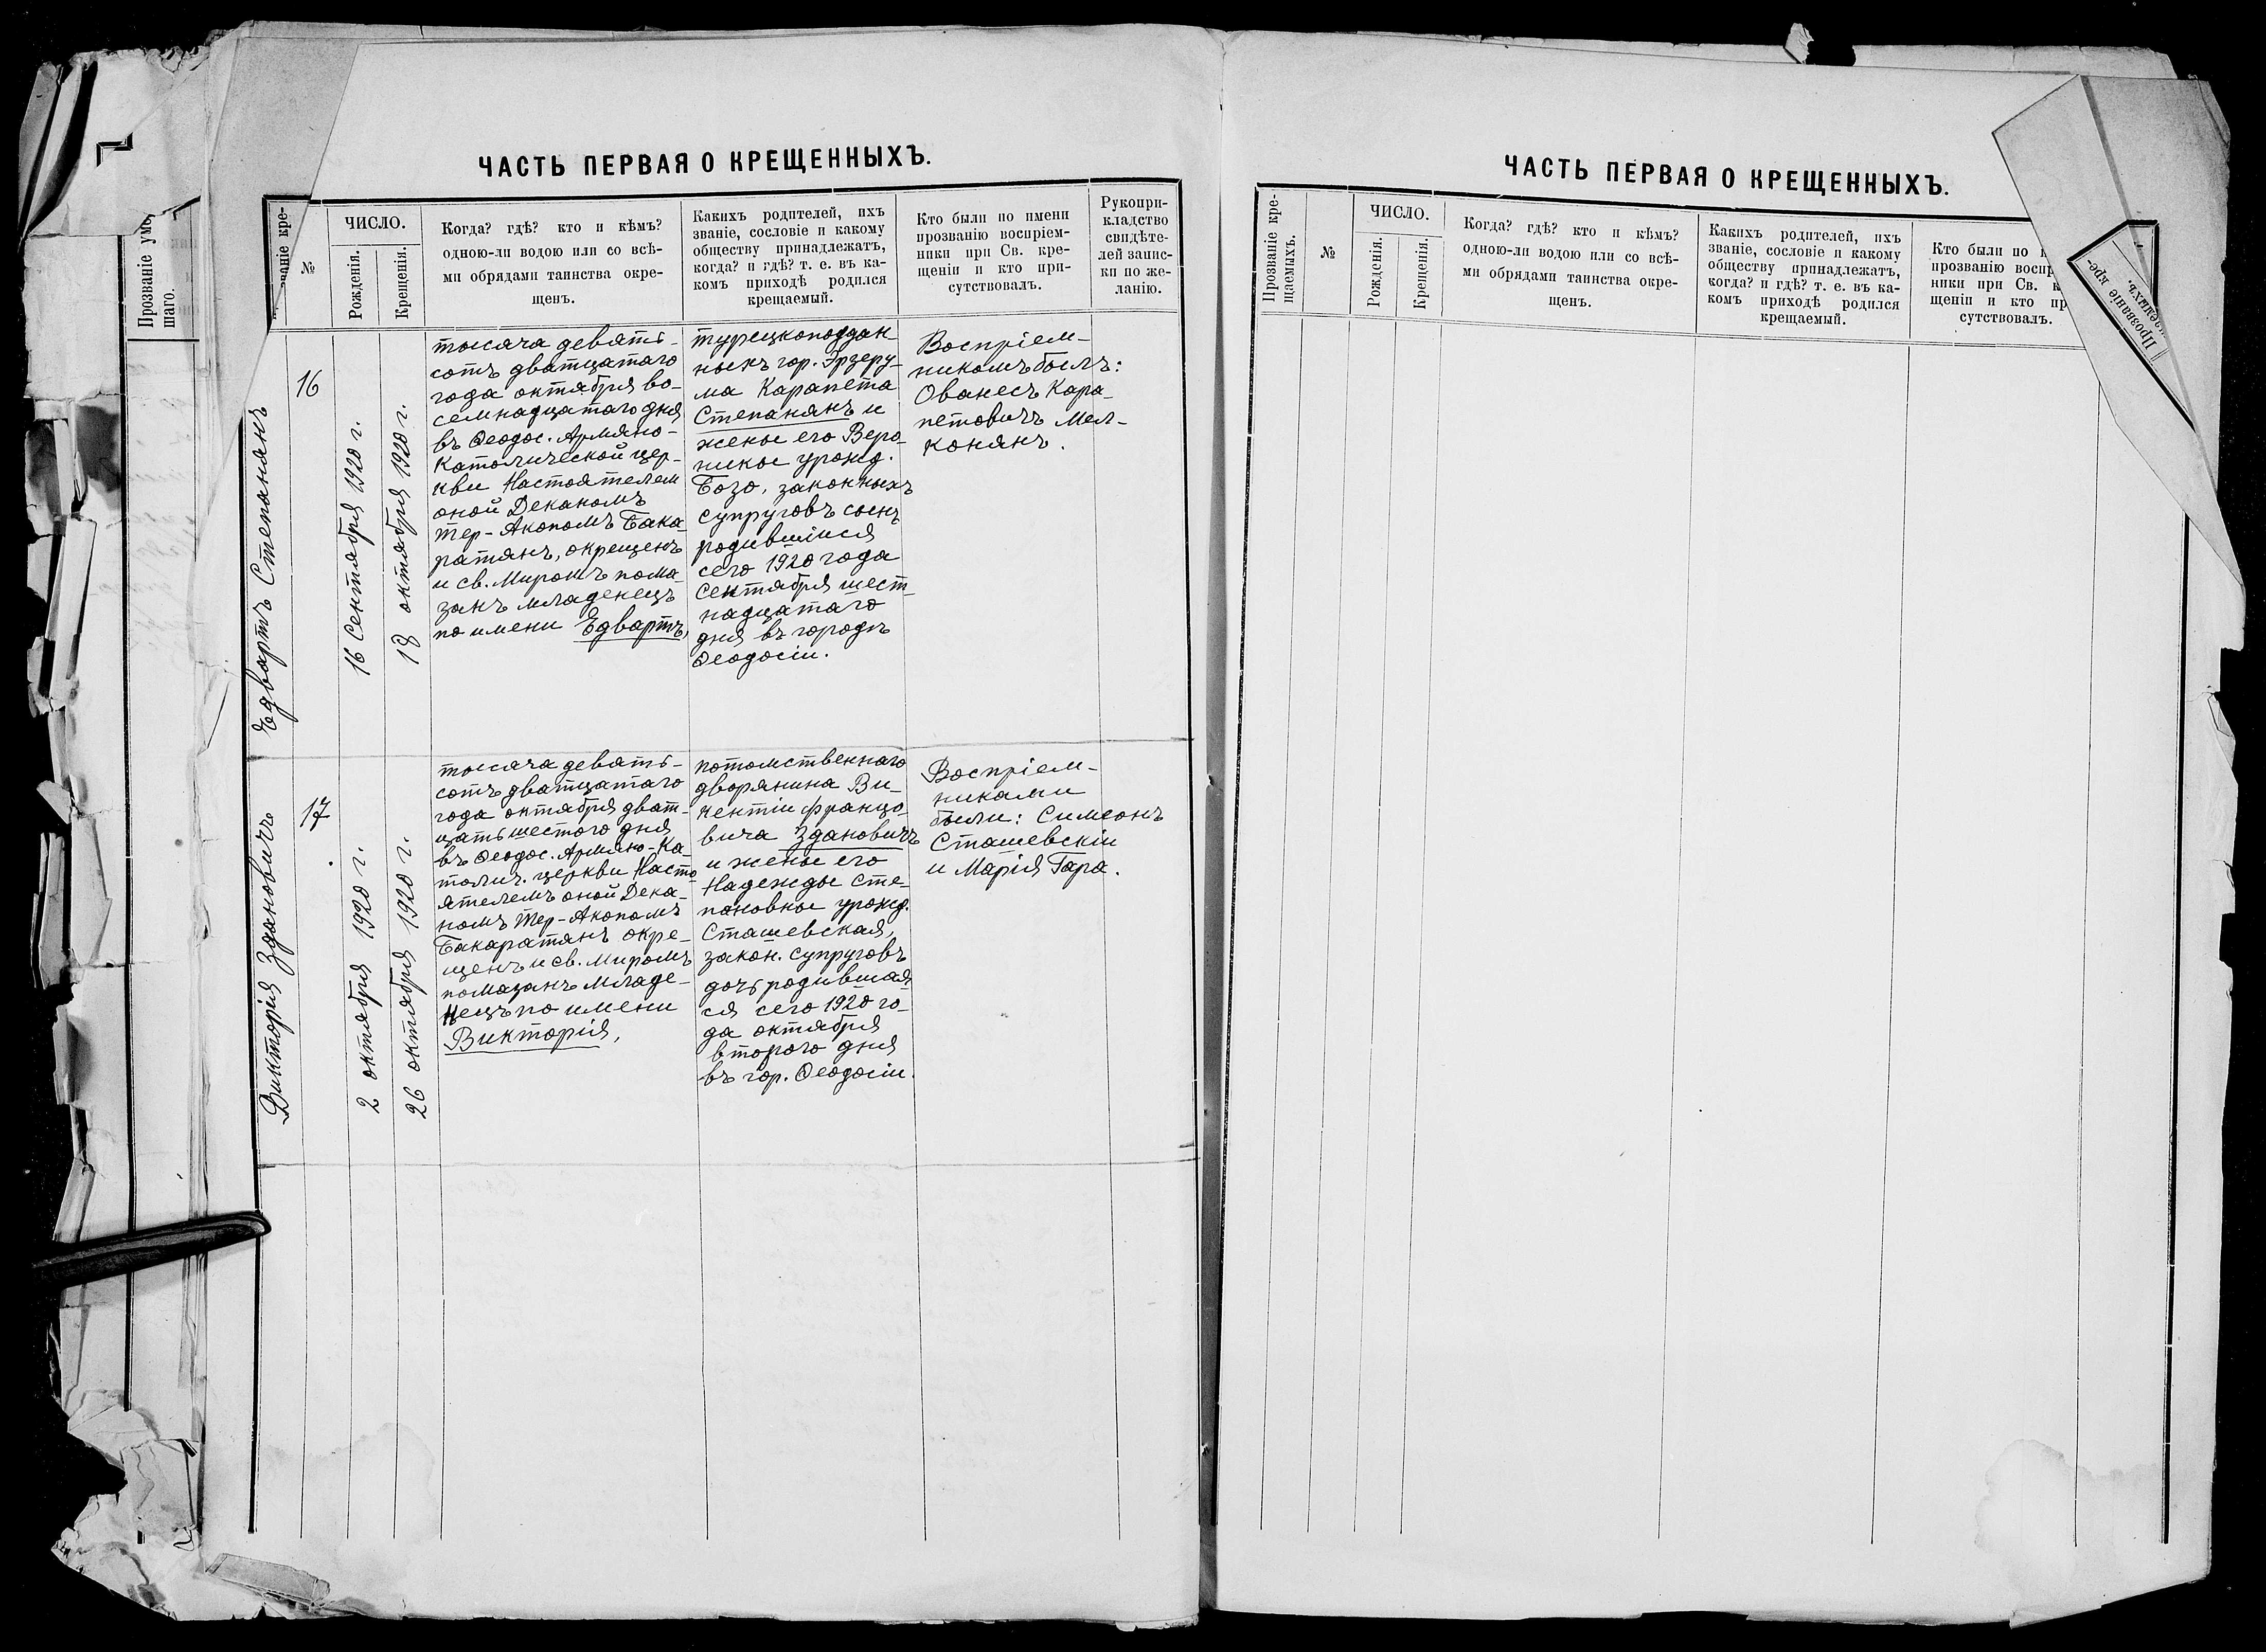 Прозваніе уме
шаго.
ЧАСТЬ ПЕРВАЯ О КРЕЩЕННЫХЪ.
званіе кре-
№
ЧИСЛО.
Рожденія.
Крещенія.
Когда? гдѣ? кто и кѣмъ?
одною-ли водою или со всѣ-
ми обрядами таинства окре-
щенъ.
Какихъ родителей, ихъ
званіе, сословіе и какому
обществу принадлежатъ,
когда? и гдѣ? т. е. въ ка-
комъ приходѣ родился
крещаемый.
Кто были по имени
прозванію воспріем-
ники при Св. кре-
щеніи и кто при-
сутствовалъ.
Рукопри-
кладство
свидѣте-
лей запис-
ки по же-
ланію.
Едвартъ Степанянъ
16
16 Сентября 1920 г.
18 октября 1920 г.
тысяча девять-
сотъ дватцатаго
года октября во-
семнадцатаго дня
въ Ѳеодос. Армяно-
Католической цер-
кви Настоятелем
оной Деканомъ
тер-Акопомъ Бака-
ратянъ, окрещенъ
и св. Миромъ пома-
занъ младенецъ
по имени Едвартъ,
турецкоподдан
ныхъ гор. Эрзеру-
ма Карапета
Степанянъ и
жены его Веро-
никы урожд.
Бозо, законныхъ
супруговъ сынъ
родившійся
сего 1920 года
Сентября шест-
надцатаго
дня въ городѣ
Ѳеодосіи.
Воспріем-
никомъ былъ:
Ованесъ Кара-
петовичъ Мел-
конянъ.
Викторія Здановичъ
17
2 октября 1920 г.
26 октября 1920 г.
тысяча девять-
сотъ дватцатаго
года октября дват-
цать шестого дня
въ Ѳеодос. Армяно-Ка-
толич. церкви Насто
ятелемъ оной Дека-
номъ Тер-Акопомъ
Бакаратянъ окре-
щенъ и св. Миромъ
помазанъ младе-
нецъ по имени
Викторія,
потомственнаго
дворянина Ви-
кентіи францо-
вича Здановичъ
и жены его
Надежды Сте-
пановны урожд.
Сташевская,
закон. супруговъ
дочь родившая
ся сего 1920 го-
да октября
второго дня
въ гор. Ѳеодосіи.
Воспріем-
никами
были: Симеонъ
Сташевскіи
и Марія Гара.
ЧАСТЬ ПЕРВАЯ О КРЕЩЕННЫХЪ.
Прозваніе кре-
щаемыхъ.
№
ЧИСЛО.
Рожденія.
Крещенія.
Когда? гдѣ? кто и кѣмъ?
одною-ли водою или со всѣ-
ми обрядами таинства окре-
щенъ.
Какихъ родителей, ихъ
званіе, сословіе и какому
обществу принадлежатъ,
когда? и гдѣ? т. е. въ ка-
комъ приходѣ родился
крещаемый.
Кто были по
прозванію воспр
ники при Св. к
щеніи и кто пр
сутствовалъ.
Прозваніе кре-